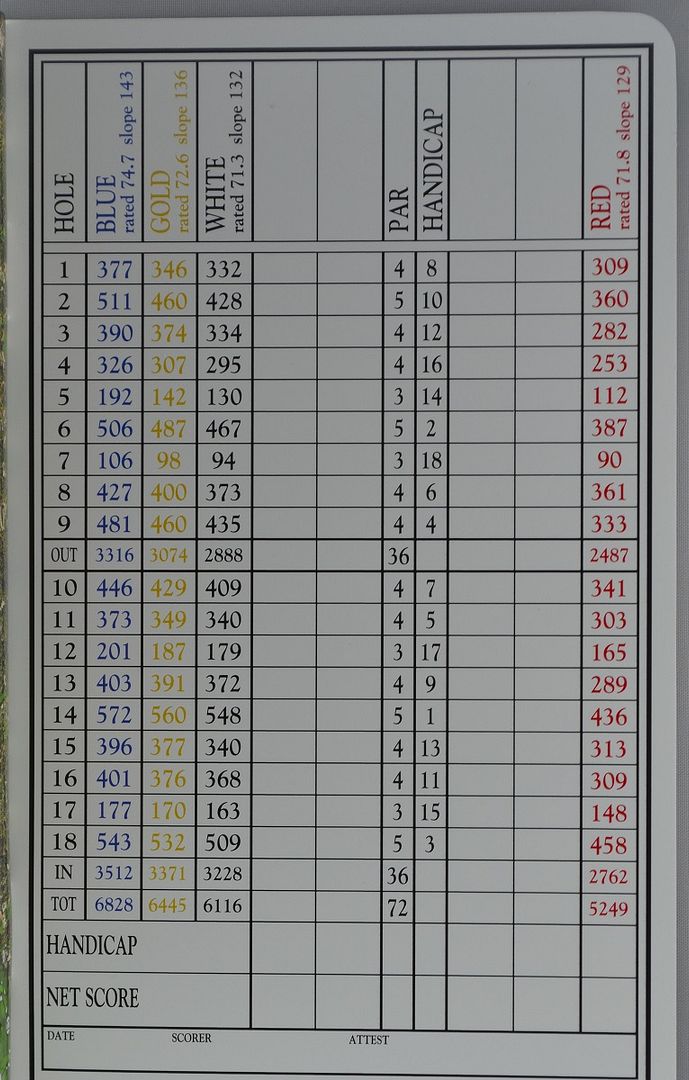 HOLE BLUE rated 74.7 slope 143 GOLD rated 72.6 slope 136 WHITE rated 71.3 slope 132 PAR HANDICAP RED rated 71.8 slope 129
1 377 346 332 4 8 309
2 511 460 428 5 10 360
3 390 374 334 4 12 282
4 326 307 295 4 16 253
5 192 142 130 3 14 112
6 506 487 467 5 2 387
7 106 98 94 3 18 90
8 427 400 373 4 6 361
9 481 460 435 4 4 333
OUT 3316 3074 2888 36 2487
10 446 429 409 4 7 341
11 373 349 340 4 5 303
12 201 187 179 3 17 165
13 403 391 372 4 9 289
14 572 560 548 5 1 436
15 396 377 340 4 13 313
16 401 376 368 4 11 309
17 177 170 163 3 15 148
18 543 532 509 5 3 458
IN 3512 3371 3228 36 2762
TOT 6828 6445 6116 72 5249
HANDICAP
NET SCORE
DATE SCORER ATTEST